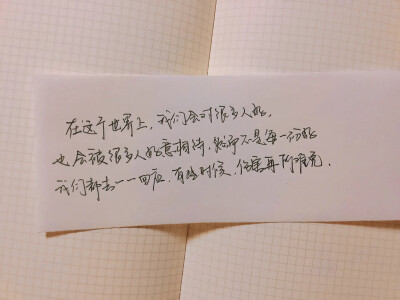 在这个世界上，我们会对很多人好，
也会被很多人好意相待，然而不是每一份好
我们都去一一回应，有些时候，伤害再所难免．